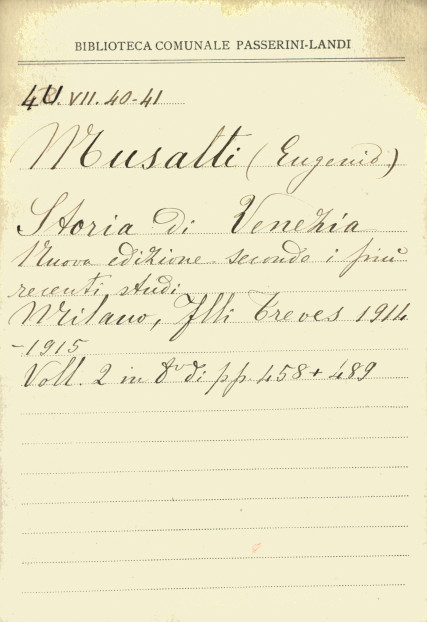 BIBLIOTECA COMUNALE PASSERINI-LANDI
4U. VII. 40-41
Musatti (Eugenio)
Storia di Venezia
Nuova edizione secondo i più
recenti studi
Milano, Flli Treves 1914
-1915
Voll. 2 in 8° di pp 458 + 489